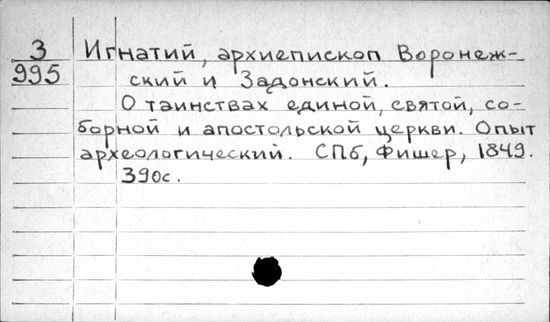 3
995
Игнатий, архиепископ Воронеж-
ский и Задонский.
О таинствах единой, святой, со-
борной и апостольской церкви. Опыт
археологический. СПб, Фишер, 1849.
390с.